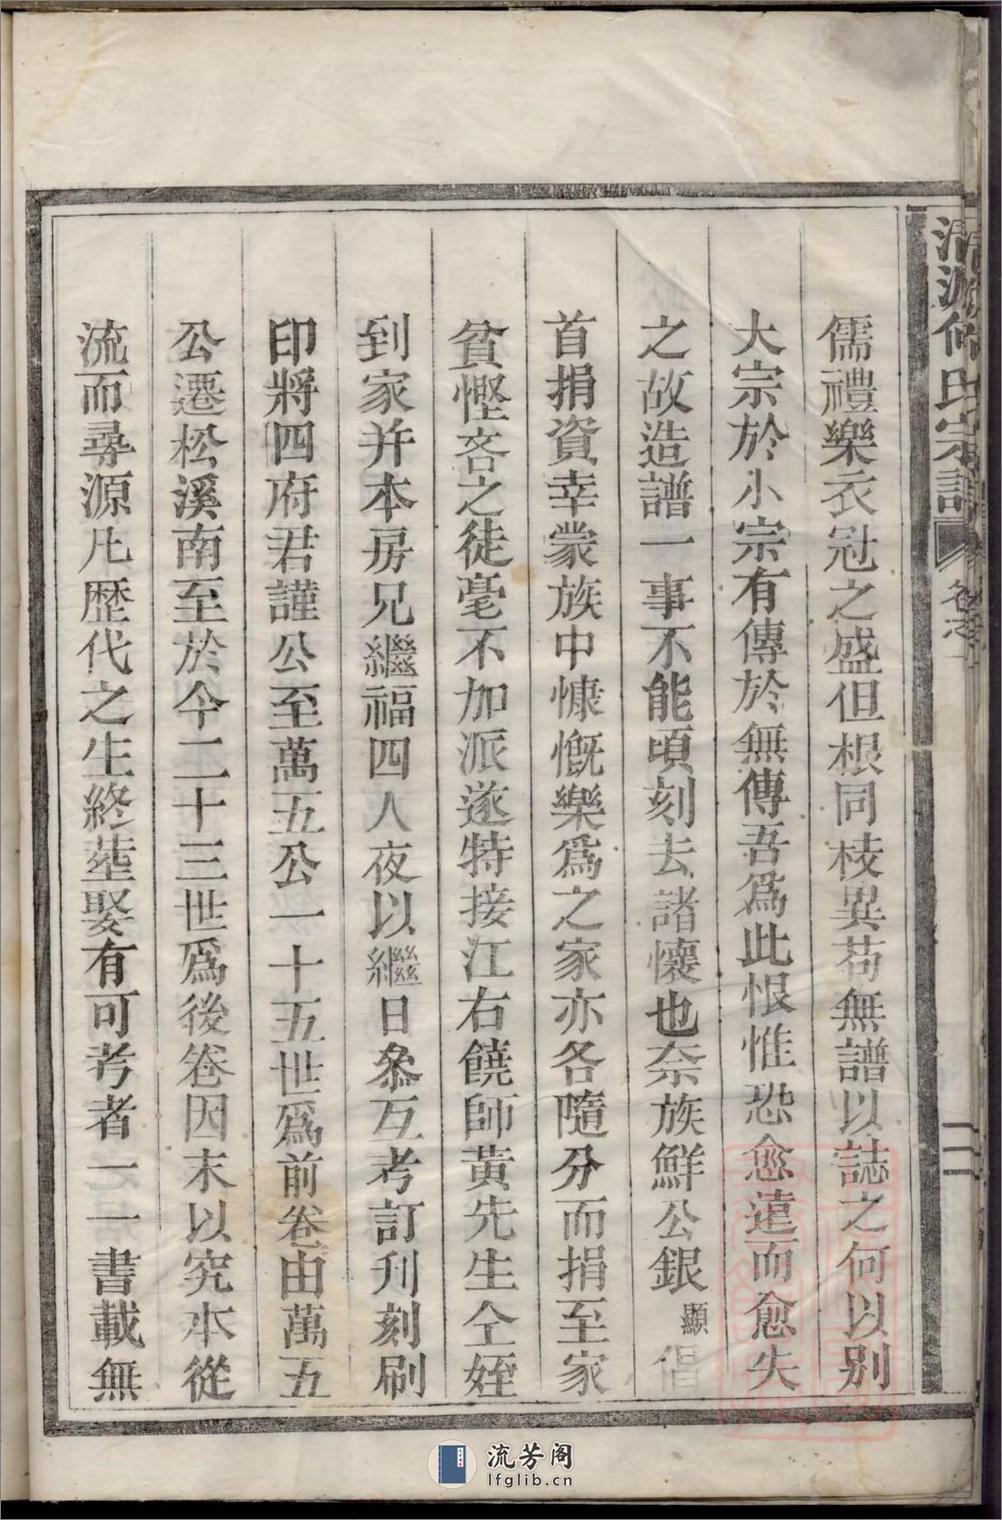 儒禮樂衣冠之盛但根同枝異苟無譜以誌之何以别
大宗於小宗有傳於無傳吾爲此恨惟恐愈遠而愈失
之故造譜一事不能頃刻去諸懷也奈族鮮公銀顯倡
首捐資幸蒙族中慷慨樂爲之家亦各隨分而捐至家
貧慳吝之徒毫不加派遂特接江右饒師黃先生仝姪
到家并本房兄繼福四人夜以繼日叅互考訂刋刻刷
印將四府君謹公至萬五公一十五世爲前卷由萬五
公遷松溪南至於今二十三世爲後卷因末以究本從
流而尋源凡歴代之生終塟娶有可考者一一書載無
氏宗譜
二
流芳阁
lfglib.cn